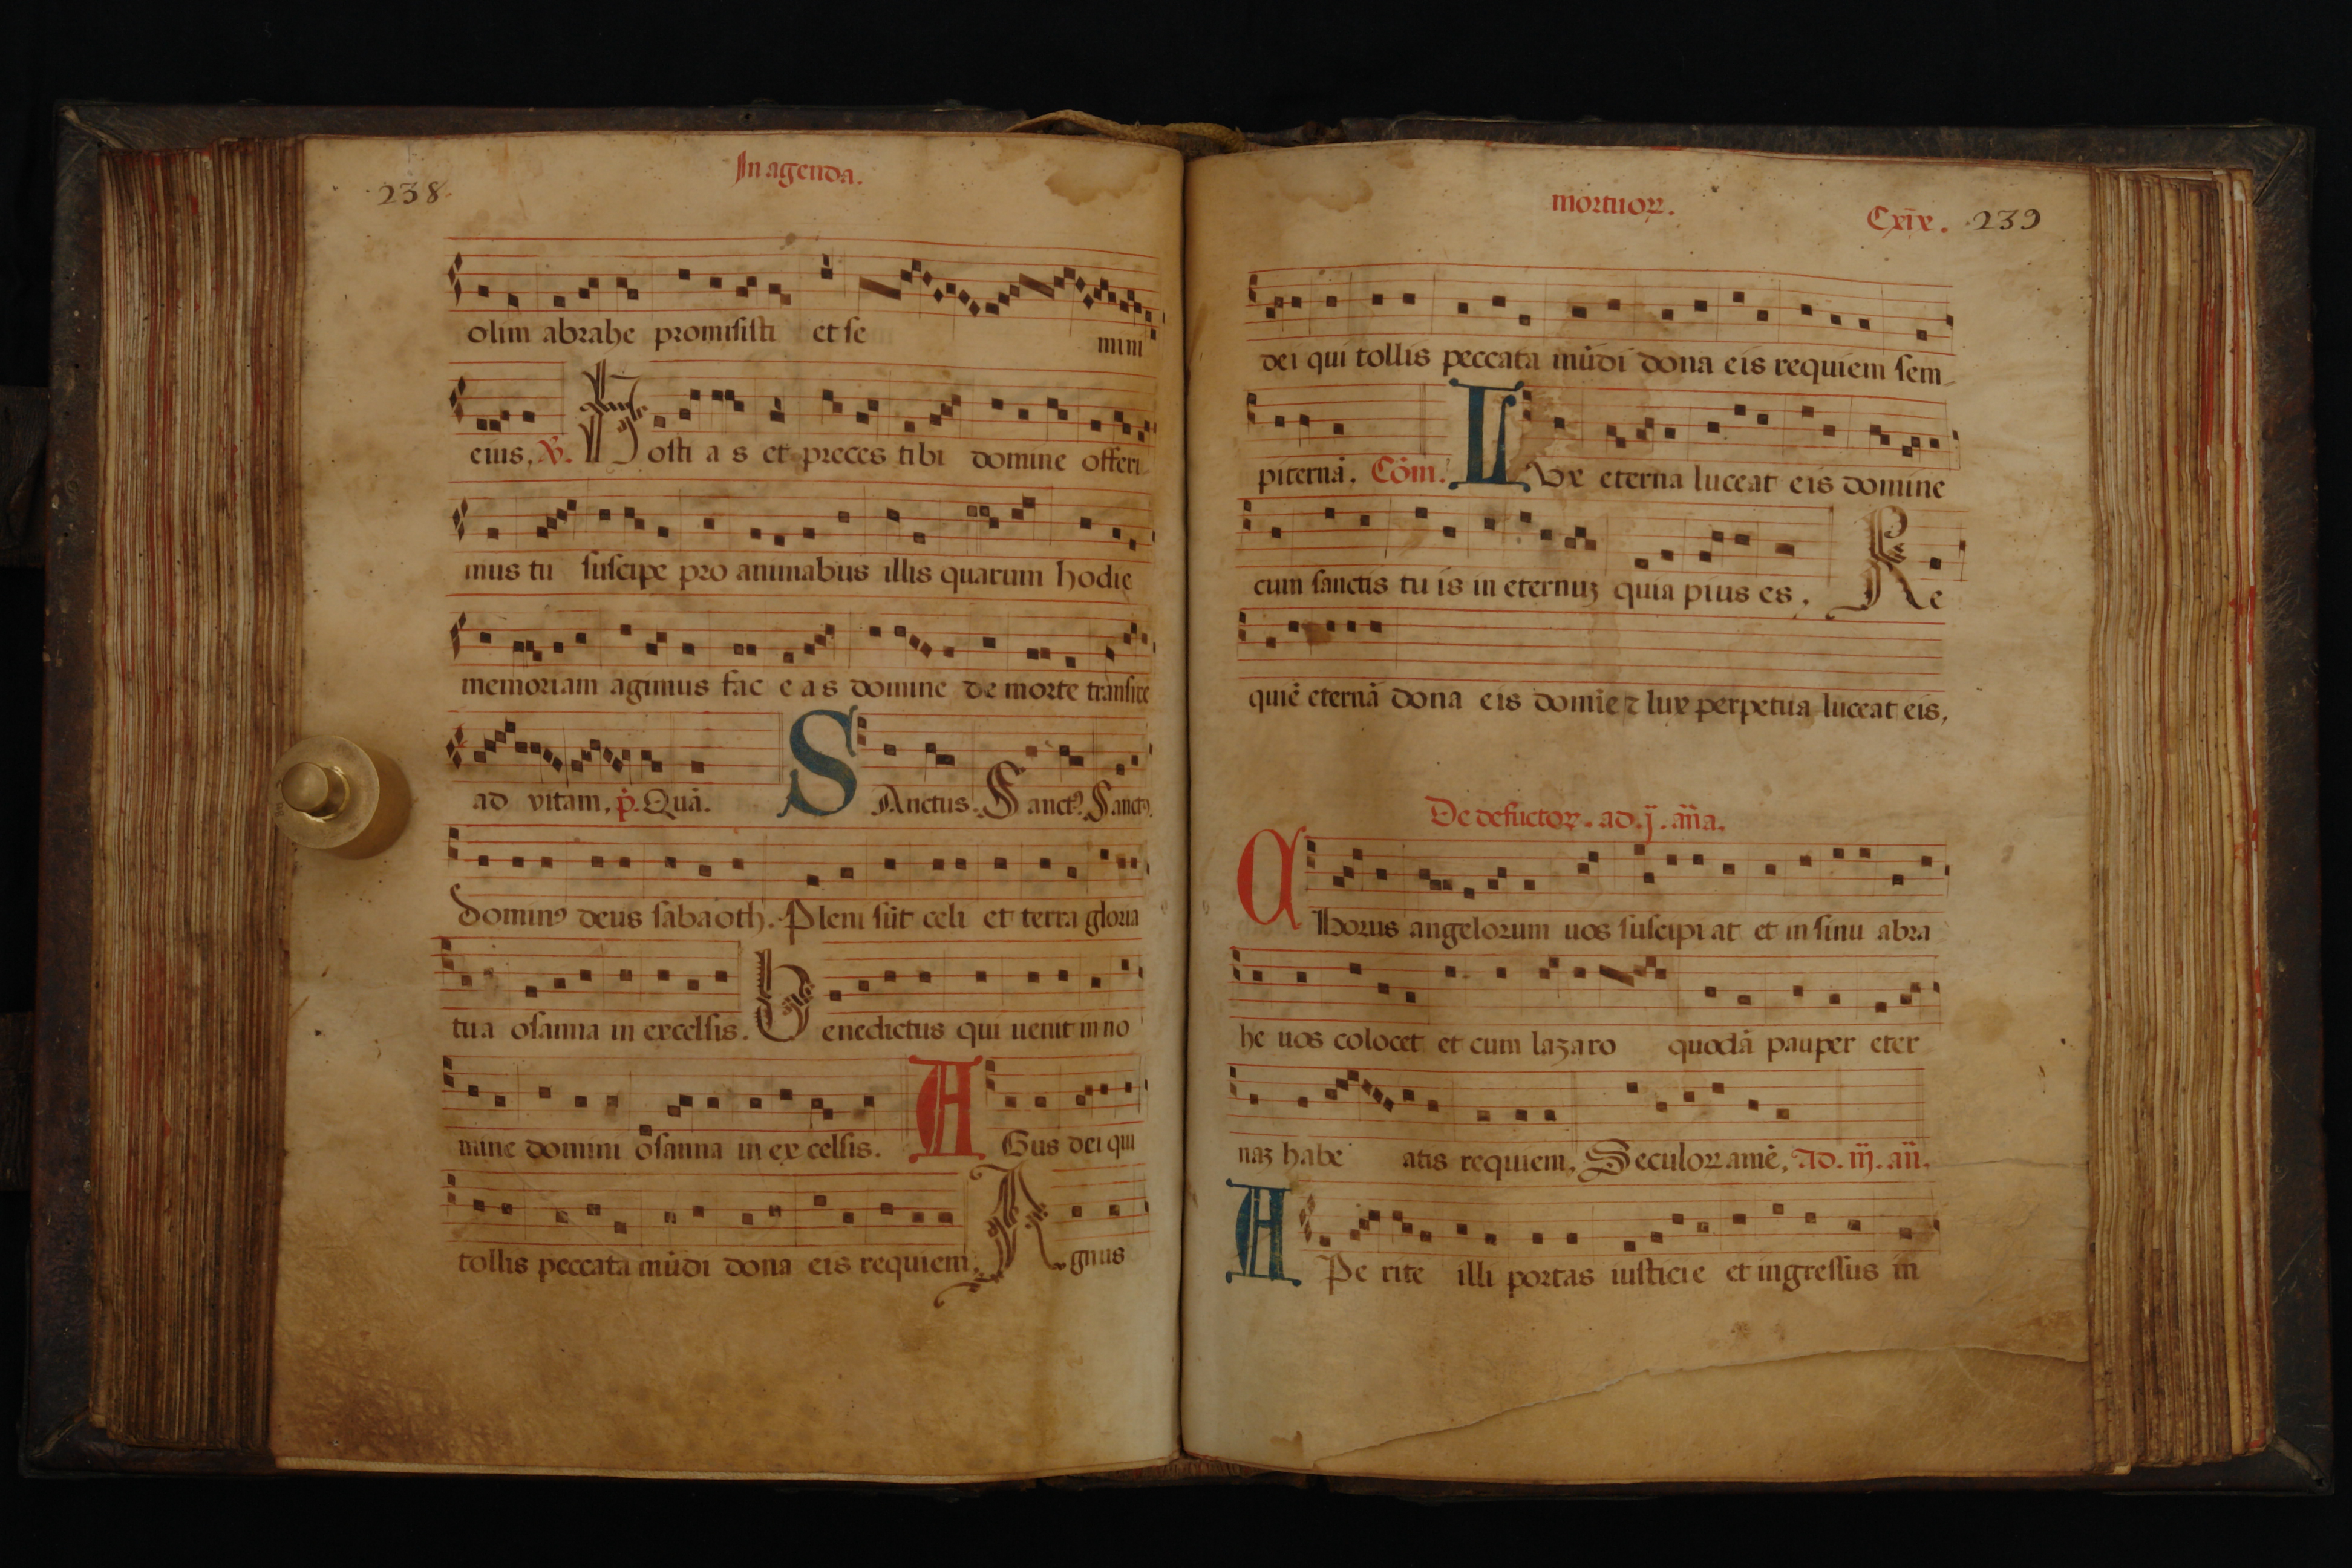 238
In agenda.
olim abrahe promisisti et se mini
eius. V. Hosti a s et preces tibi domine offeri
mus tu suscipe pro animabus illis quarum hodie
memoriam agimus fac e a s domine de morte transire
ad vitam. p. Quā.
SAnctus. Sanctꝰ. Sanctꝰ.
dominꝰ deus sabaoth. Pleni sūt celi et terra gloria
tua osanna in excelsis. Benedictus qui uenit in no
mine domini osanna in ex celsis. AGus dei qui
tollis peccata mūdi dona eis requiem. Agnus
mortuoꝝ.
Cxix. 239
dei qui tollis peccata mūdi dona eis requiem sem
piternā. Cōm. LVx eterna luceat eis domine
cum sanctis tu is in eternuꝫ quia pius es. Re
quiē eternā dona eis domīe ⁊ lux perpetua luceat eis,
De defūctoꝝ. ad. j. āna.
Chorus angelorum uos suscipi at et in sinu abra
he uos colocet et cum lazaro quodā pauper eter
naꝫ habe atis requiem. Seculoꝝ amē. Ad. iij. añ.
APe rite illi portas iusticie et ingressus in